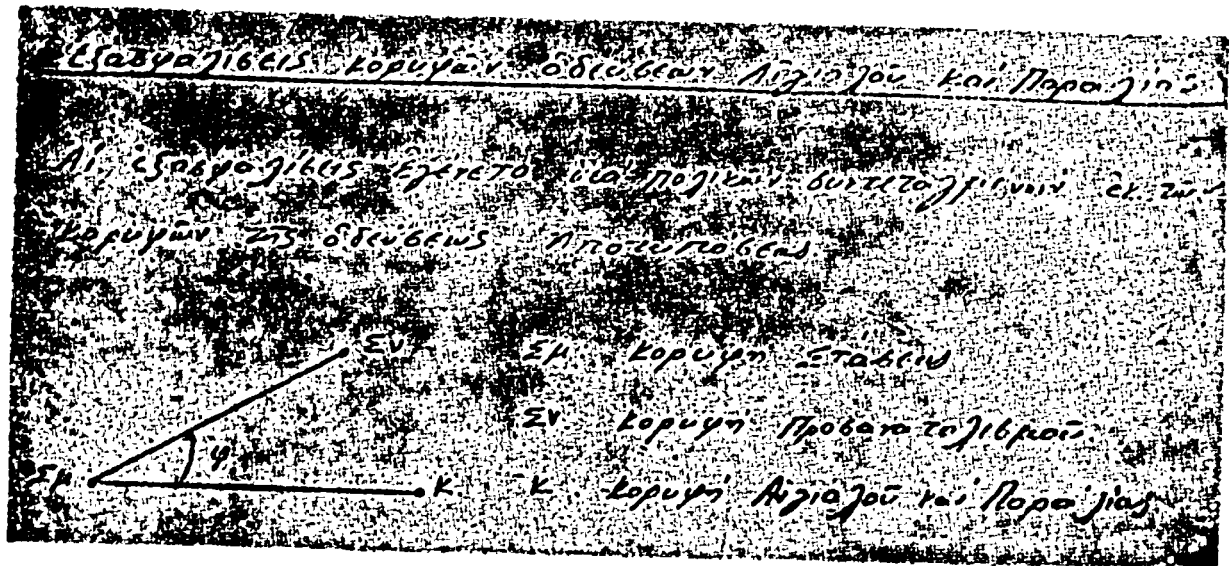 Ἐξασφαλίσεις κορυφῶν ὁδεύσεων Αἰγιαλοῦ καί Παραλίας
Αἱ ἐξασφαλίσεις ἐγένετο διά πολικῶν συντεταγμένων ἐκ τῶν
κορυφῶν τῆς ὁδεύσεως Ἀποτυπώσεως
Σν
Σμ. κορυφή Στάσεως
Σν. κορυφή Προσανατολισμοῦ
φ
Σμ. Κ Κ. κορυφή Αἰγιαλοῦ καί Παραλίας